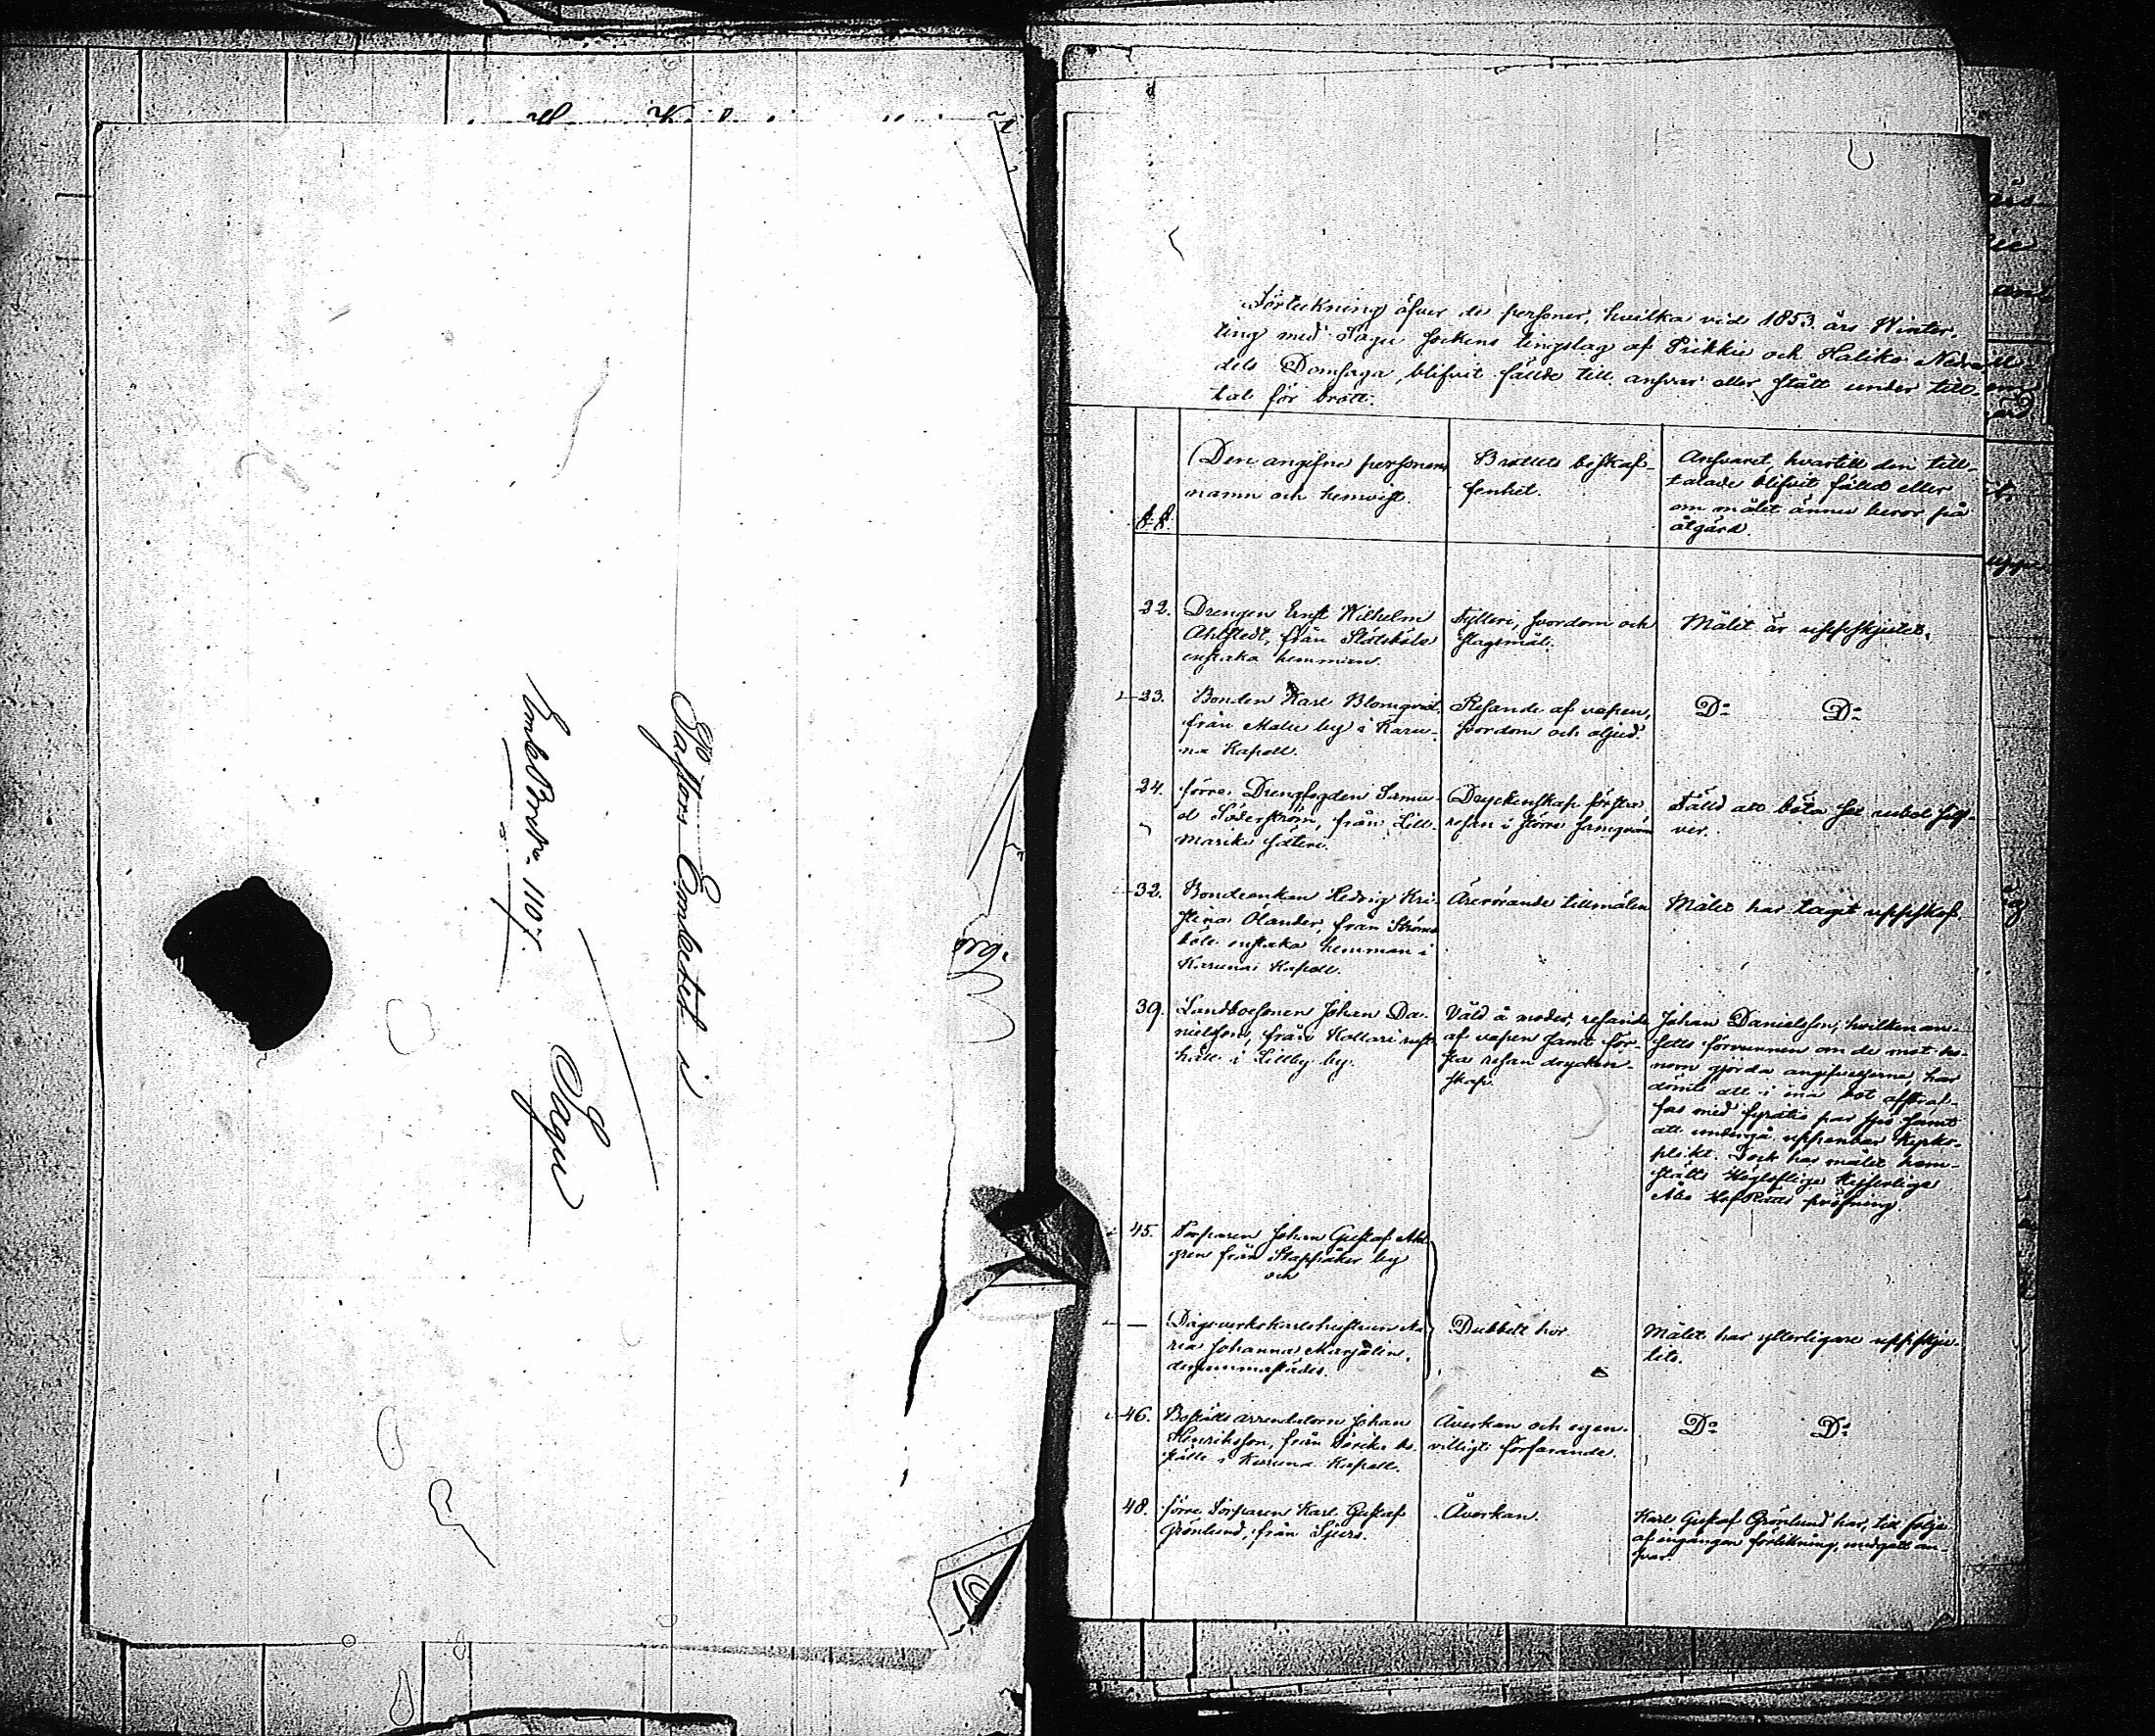 Pastors Embetet i
Sagu
Enl. Bref No 1107.
Förteckning öfver de personer, hvilka vid 1853 års Winter-
ting med Sagu sockens tingslag af Piikkie och Haliko Nedra
dels Domsaga, blifvit fällde till ansvar eller stått under till-
tal för brott.
§§.
Den angifne personens
namn och hemvist.
Brottets beskaf-
fenhet.
Ansvaret, hvartill den till-
talade blifvit fälld eller
om målet ännu beror på
åtgärd.
22.
Drengen Ernst Wilhelm
Ahlstedt, från
enstaka hemman.
Fylleri, svordom och
slagsmål.
Målet är uppskjutet.
23.
Bonden Karl Blomqvist,
från Malu by i Karu-
na Kapell.
Resande af vapen,
svordom och oljud.
Do Do
24.
förre Drengfogden Samu-
el Söderström, från Lill-
Marike säteri.
Dryckenskap första
resan i större samqväm
Fälld att böta sex rubel silf-
ver.
32.
Bondeenkan Hedvig Kri-
stina Ölander, från Ströms
böle enstaka hemman i
Karuna Kapell.
Ärerörande tillmälen
Målet har tagit uppskof.
39.
Landboesonen Johan Da-
nielsson, från Kollari rust-
håll i Lillby by.
Våld å moder, resande
af vapen samt för-
sta resan drycken-
skap.
Johan Danielsson, hvilken an-
setts förvunnen om de mot ho-
nom gjorda angifvelserna, har
dömts att i ena bot afstraf-
fas med fyratio par spö samt
att undergå uppenbar kyrko-
plikt. Dock har målet hem-
ställts Höglofliga Kejserliga
Åbo HofRätts pröfning.
45.
Torparen Johan Gustaf
gren från Stappåker by
och
—
Dagsverkskarlshustrun Ma-
ria Johanna Marjalin,
dersammastädes.
Dubbelt hor.
Målet har ytterligare uppskju-
tits.
46.
Boställs arrendatorn Johan
Henriksson, från bo-
ställe i Karuna Kapell.
Åverkan och egen-
villigt förfarande.
Do Do
48.
förre Torparen Karl Gustaf
Grönlund, från
Åverkan.
Karl Gustaf Grönlund har, till följe
af ingången förlikning, undgått an-
svar.